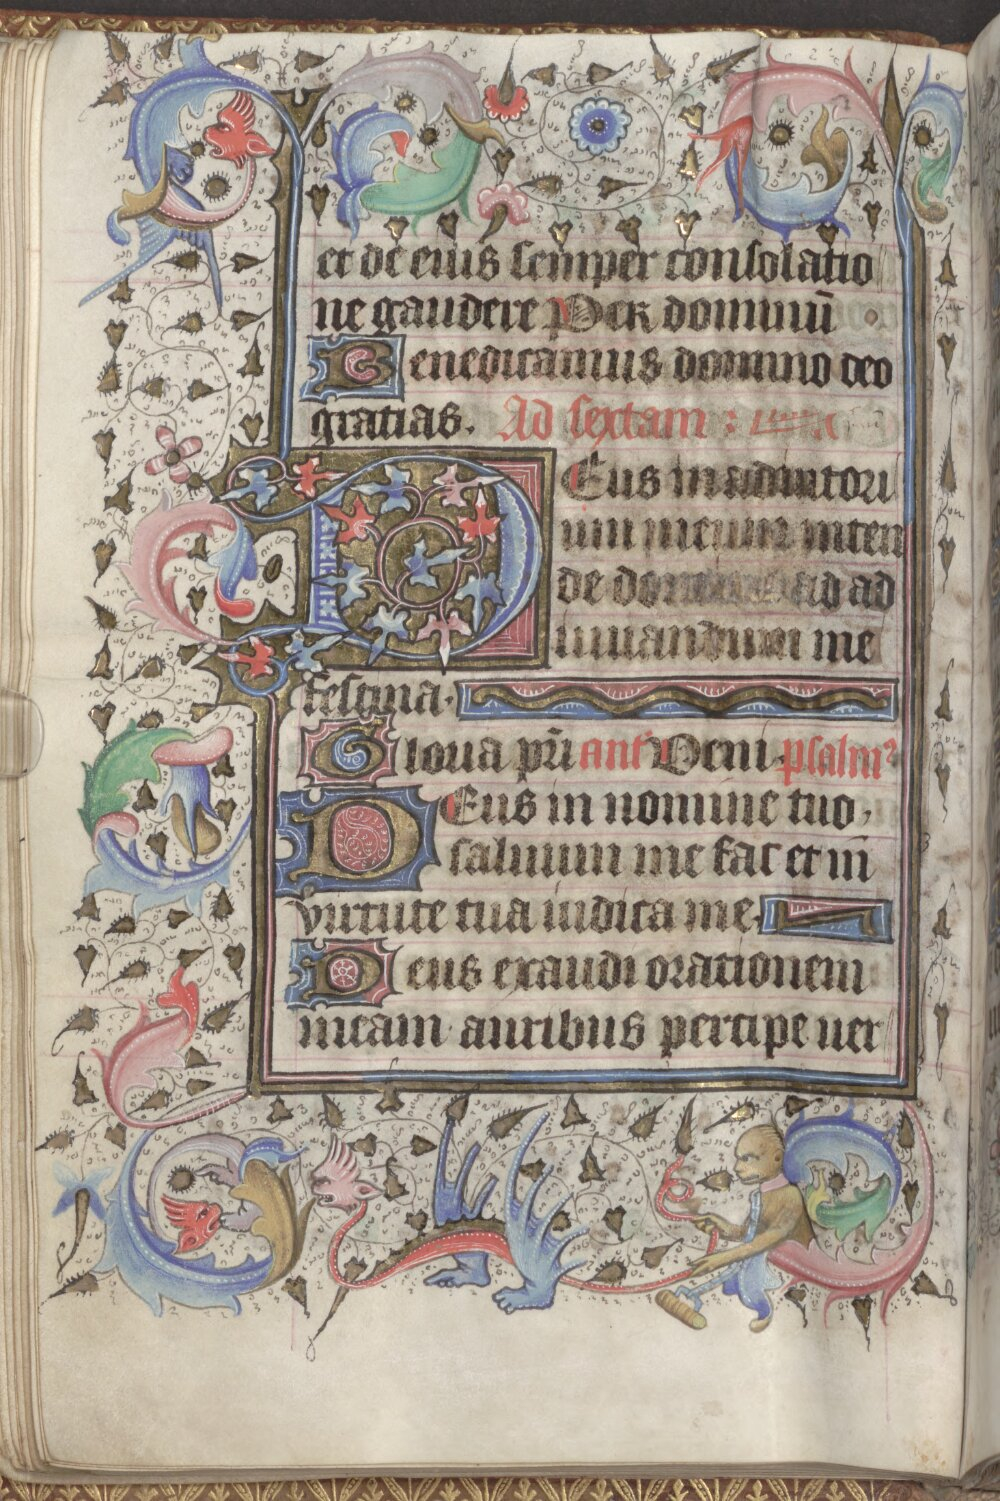 et de eius semper consolatio
ne gaudere Per dominū
Benedicamus domino deo
gratias. Ad sextam
Deus in adiutori
um meum inten
de domine ad ad
iuuandum me
festina.
Gloria pr̄i an̄t Veni psalm
Deus in nomine tuo
saluum me fac et in̄
virtute tua iudica me.
Deus exaudi orationem
meam auribus percipe uer